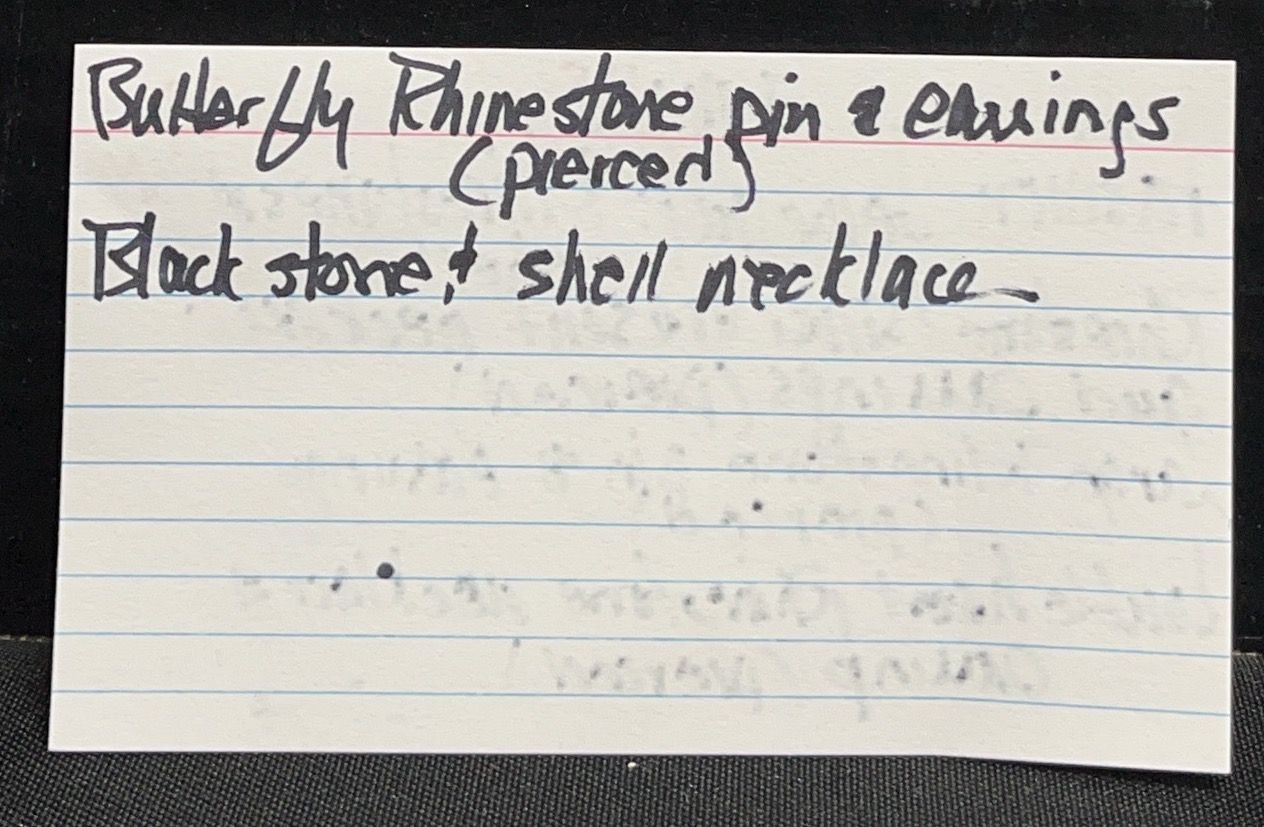 Butterfly Rhinestone pin & earrings
(pierced)
Black stone & shell necklace